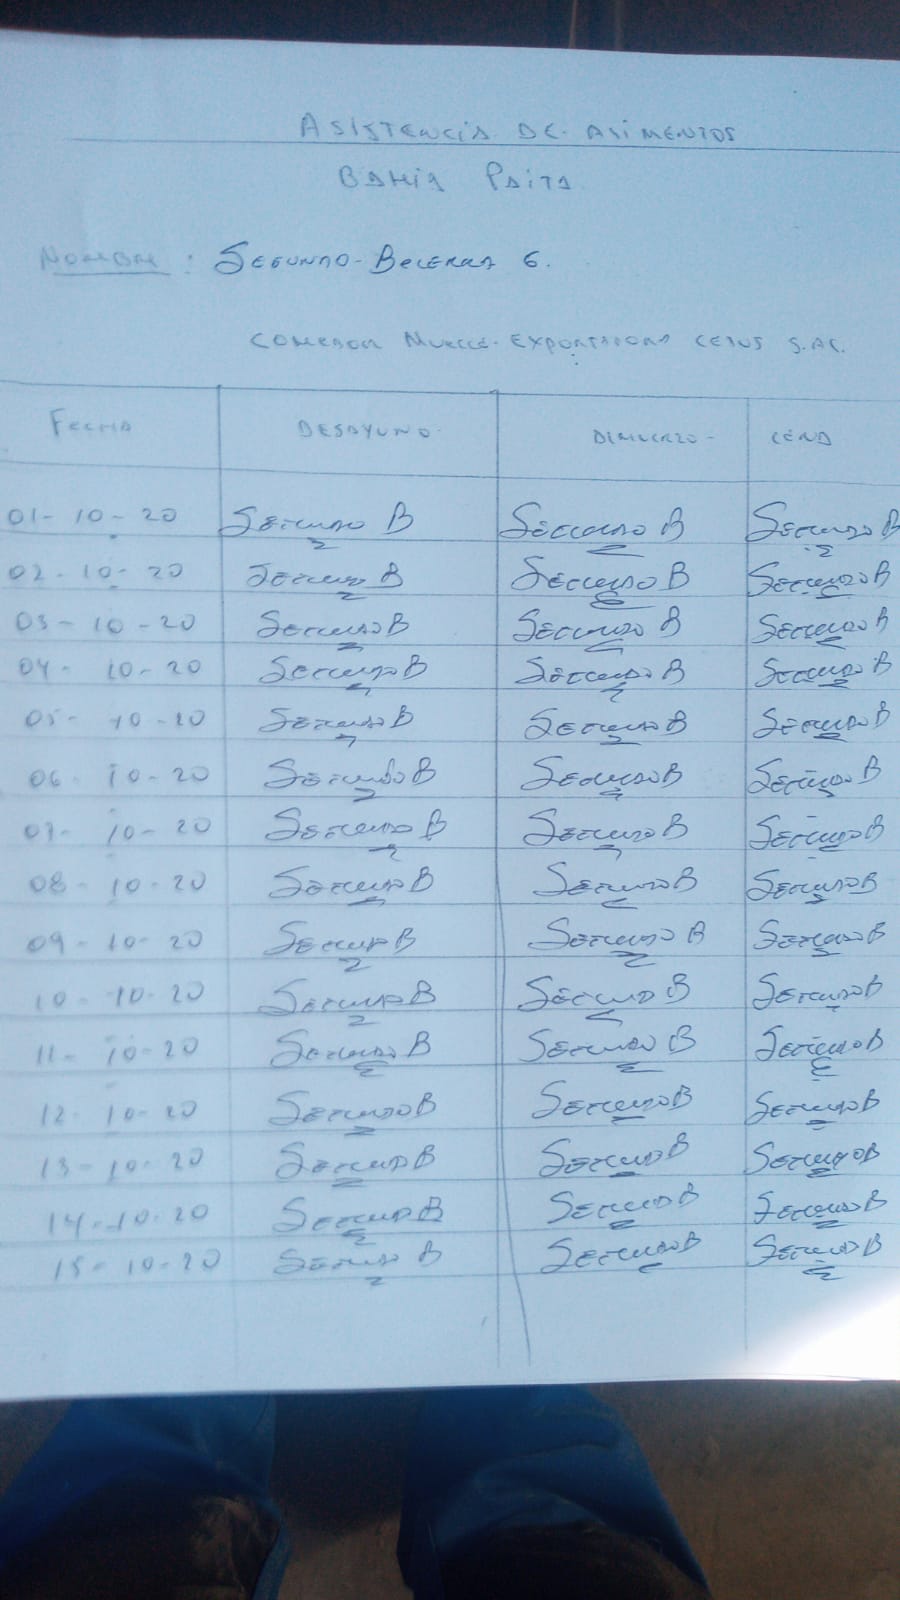 ASISTENCIA DE ALIMENTOS
BAHIA PAITA
NOMBRE : SEGUNDO - BECERRA G.
COMEDOR MUELLE - EXPORTADORA CETUS S.A.C.
FECHA DESAYUNO ALMUERZO - CENA
01-10-20 SEGUNDO B SEGUNDO B SEGUNDO B
02-10-20 SEGUNDO B SEGUNDO B SEGUNDO B
03-10-20 SEGUNDO B SEGUNDO B SEGUNDO B
04-10-20 SEGUNDO B SEGUNDO B SEGUNDO B
05-10-20 SEGUNDO B SEGUNDO B SEGUNDO B
06-10-20 SEGUNDO B SEGUNDO B SEGUNDO B
07-10-20 SEGUNDO B SEGUNDO B SEGUNDO B
08-10-20 SEGUNDO B SEGUNDO B SEGUNDO B
09-10-20 SEGUNDO B SEGUNDO B SEGUNDO B
10-10-20 SEGUNDO B SEGUNDO B SEGUNDO B
11-10-20 SEGUNDO B SEGUNDO B SEGUNDO B
12-10-20 SEGUNDO B SEGUNDO B SEGUNDO B
13-10-20 SEGUNDO B SEGUNDO B SEGUNDO B
14-10-20 SEGUNDO B SEGUNDO B SEGUNDO B
15-10-20 SEGUNDO B SEGUNDO B SEGUNDO B